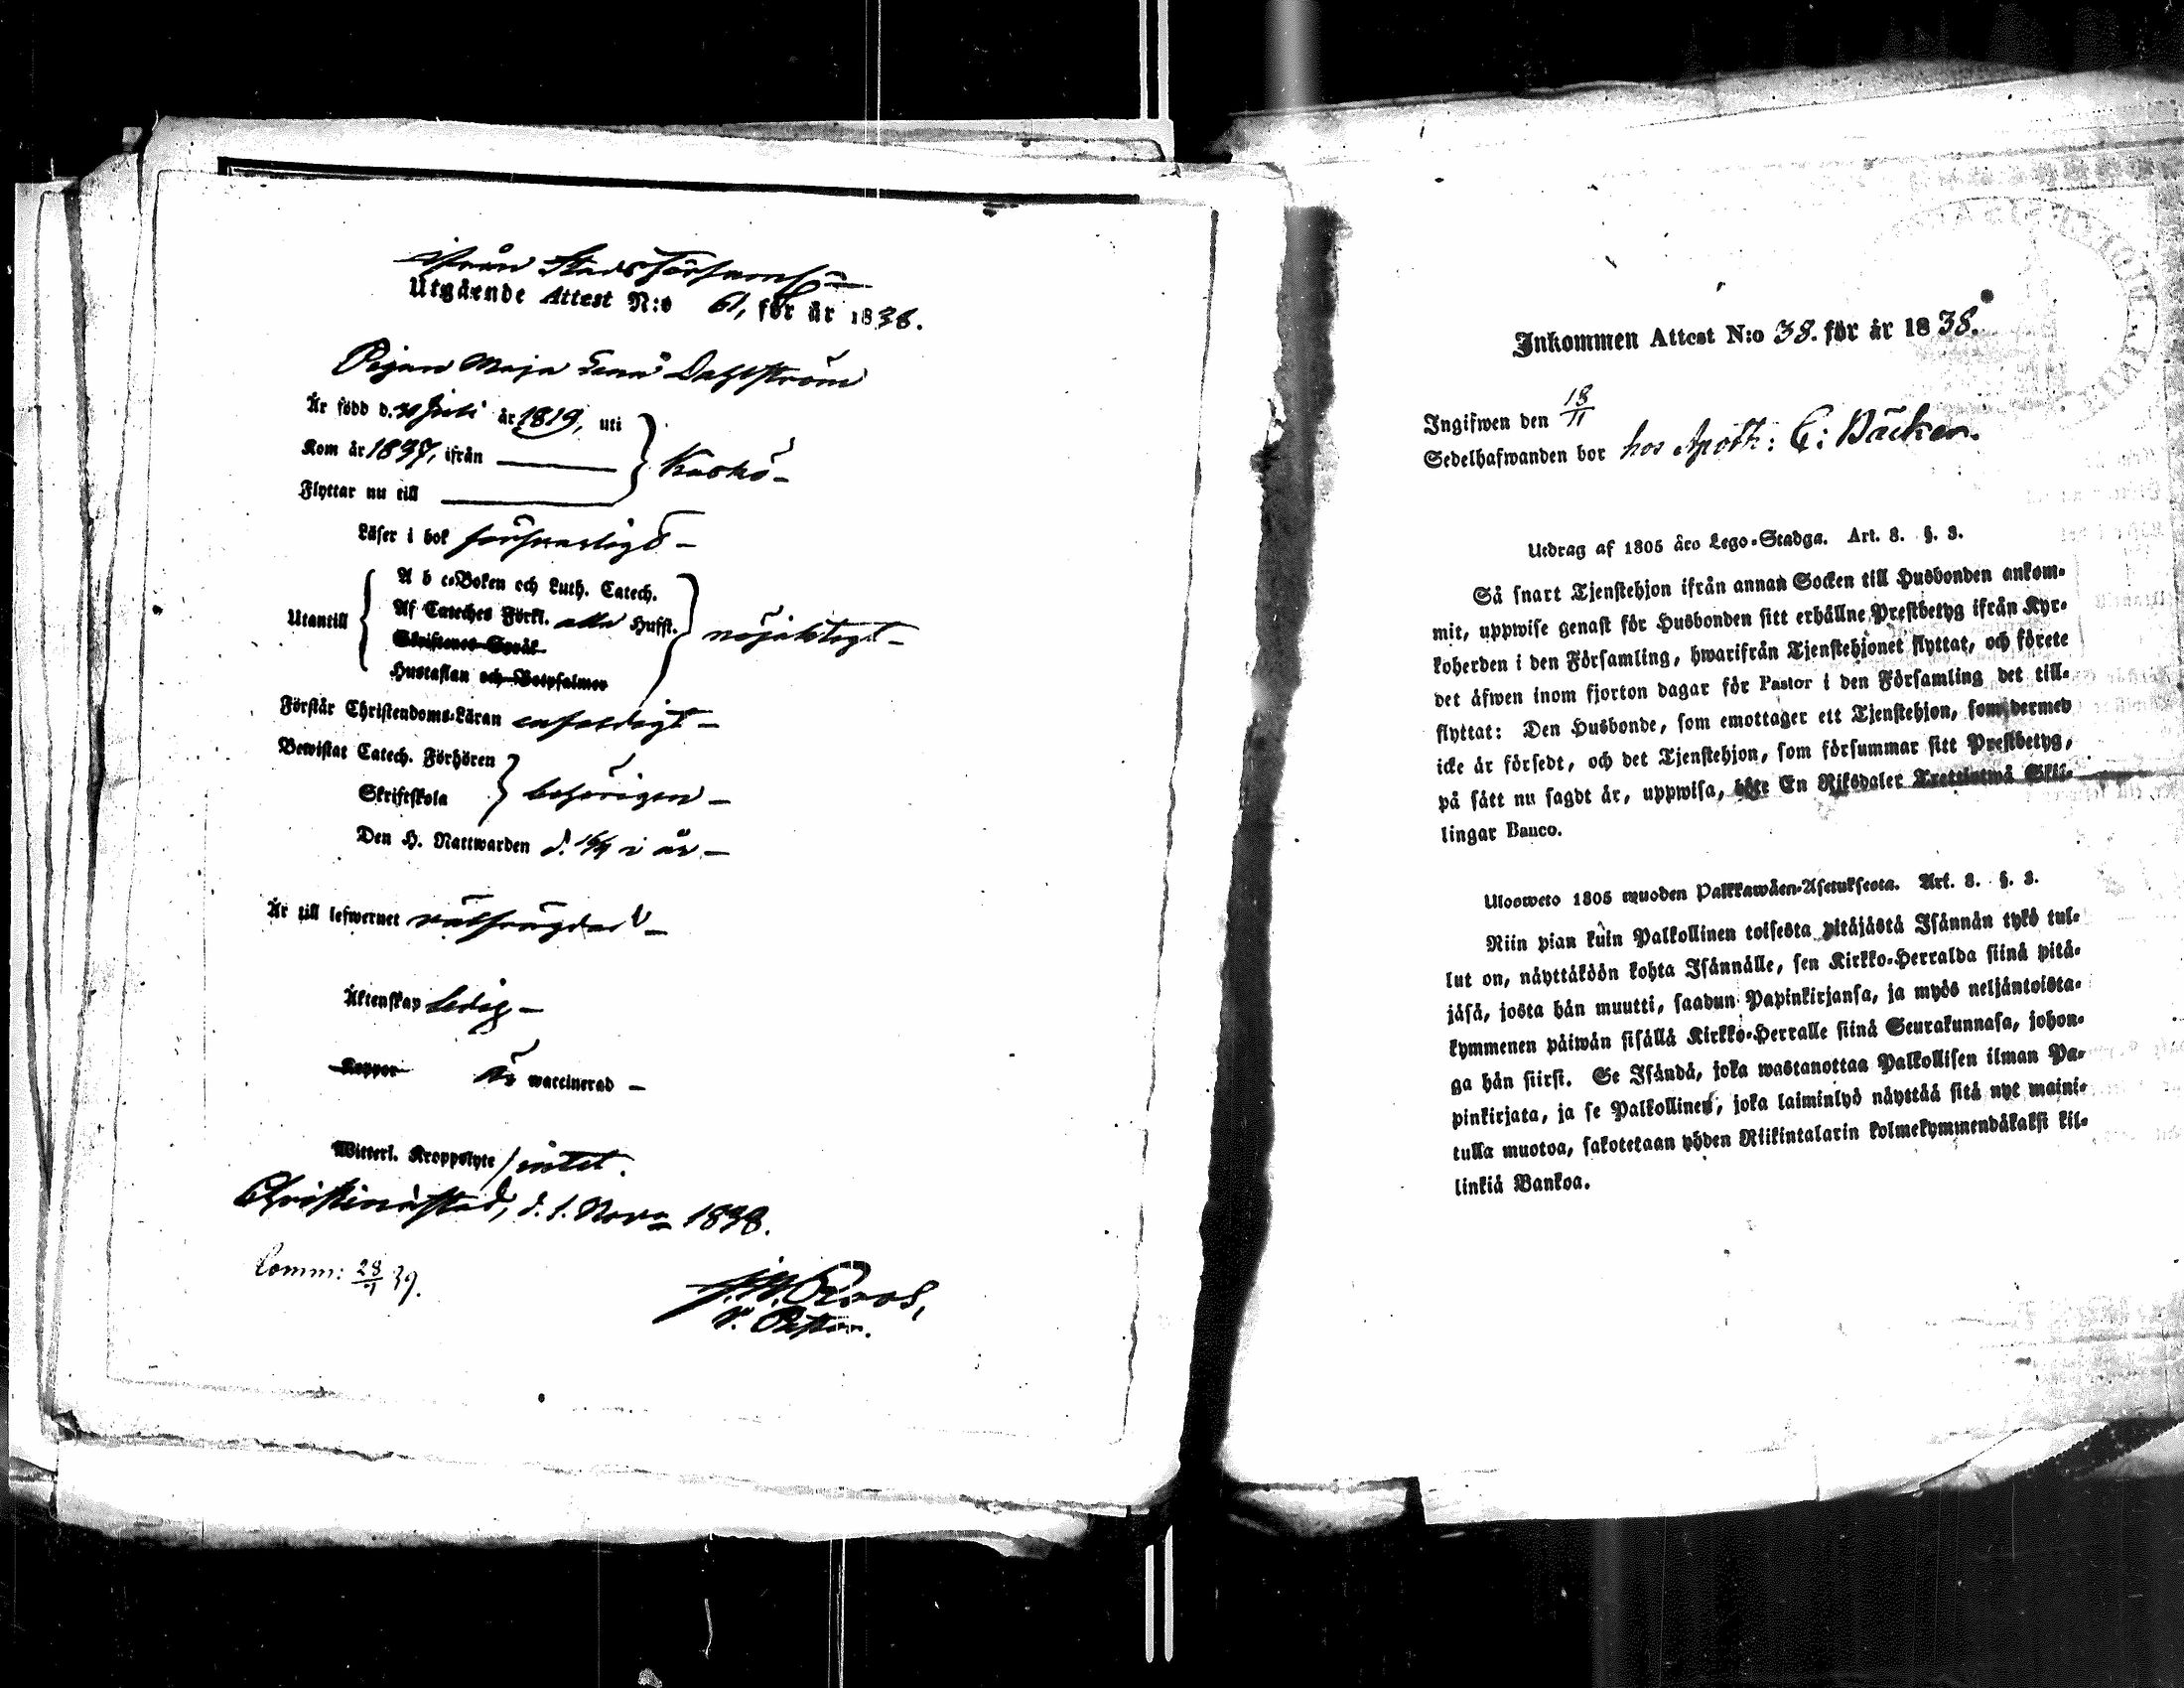 ifrån Stadsförsaml:n
Utgående Attest N:o 61, för år 1838.
Pigan Maja Lena Dahlström
Är född d. Juli år 1819, uti
Kom år 1837, ifrån
Kaskö
Flyttar nu till
Läser i bok försvarligt
A b c-Boken och Luth. Catech.
Af Cateches Förkl. alla Hufst.
Utantill
nöjaktigt
Skriftenes Språk
Hustaflan och Botpsalmer
Förstår Christendoms-Läran enfaldigt
Bewistat Catech. Förhören
behörigen
Skriftskola
Den H. Nattwarden d. i år
Är till lefwernet välfrägdad
Äktenskap ledig
Koppor är waccinerad
Witterl. Kroppslyte intet.
Christinæstad, d. 1. Nov. 1838.
Comm: 28/4 39.
Roos,
V. Pastor.
Inkommen Attest N:o 38. för år 1838.
Ingifwen den 18/11
Sedelhafwanden bor hos Apoth: C: Bäcker.
Utdrag af 1805 års Lego-Stadga. Art. 8. §. 3.
Så snart Tjenstehjon ifrån annan Socken till Husbonden ankom-
mit, uppwise genast för Husbonden sitt erhållne Prestbetyg ifrån Kyr-
koherden i den Församling, hwarifrån Tjenstehjonet flyttat, och förete
det äfwen inom fjorton dagar för Pastor i den Församling det till-
flyttat: Den Husbonde, som emottager ett Tjenstehjon, som dermed
icke är försedt, och det Tjenstehjon, som försummar sitt Prestbetyg,
på sätt nu sagdt är, uppwisa, böte En Riksdaler Trettiotwå Skil-
lingar Banco.
Ulosweto 1805 wuoden Palkkawäen-Asetuksesta. Art. 8. §. 3.
Niin pian kuin Palkollinen toisesta pitäjästä Isännän tykö tul-
lut on, näyttäköön kohta Isännälle, sen Kirkko-Herralda siinä pitä-
jäsä, josta hän muutti, saadun Papinkirjansa, ja myös neljäntoista-
kymmenen päiwän sisällä Kirkko-Herralle siinä Seurakunnasa, johon-
ga hän siirsi. Se Isändä, joka wastanottaa Palkollisen ilman Pa-
pinkirjata, ja se Palkollinen, joka laiminlyö näyttää sitä nyt maini-
tulla muotoa, sakotetaan yöden Riikintalarin kolmekymmendäkaksi kil-
linkiä Bankoa.